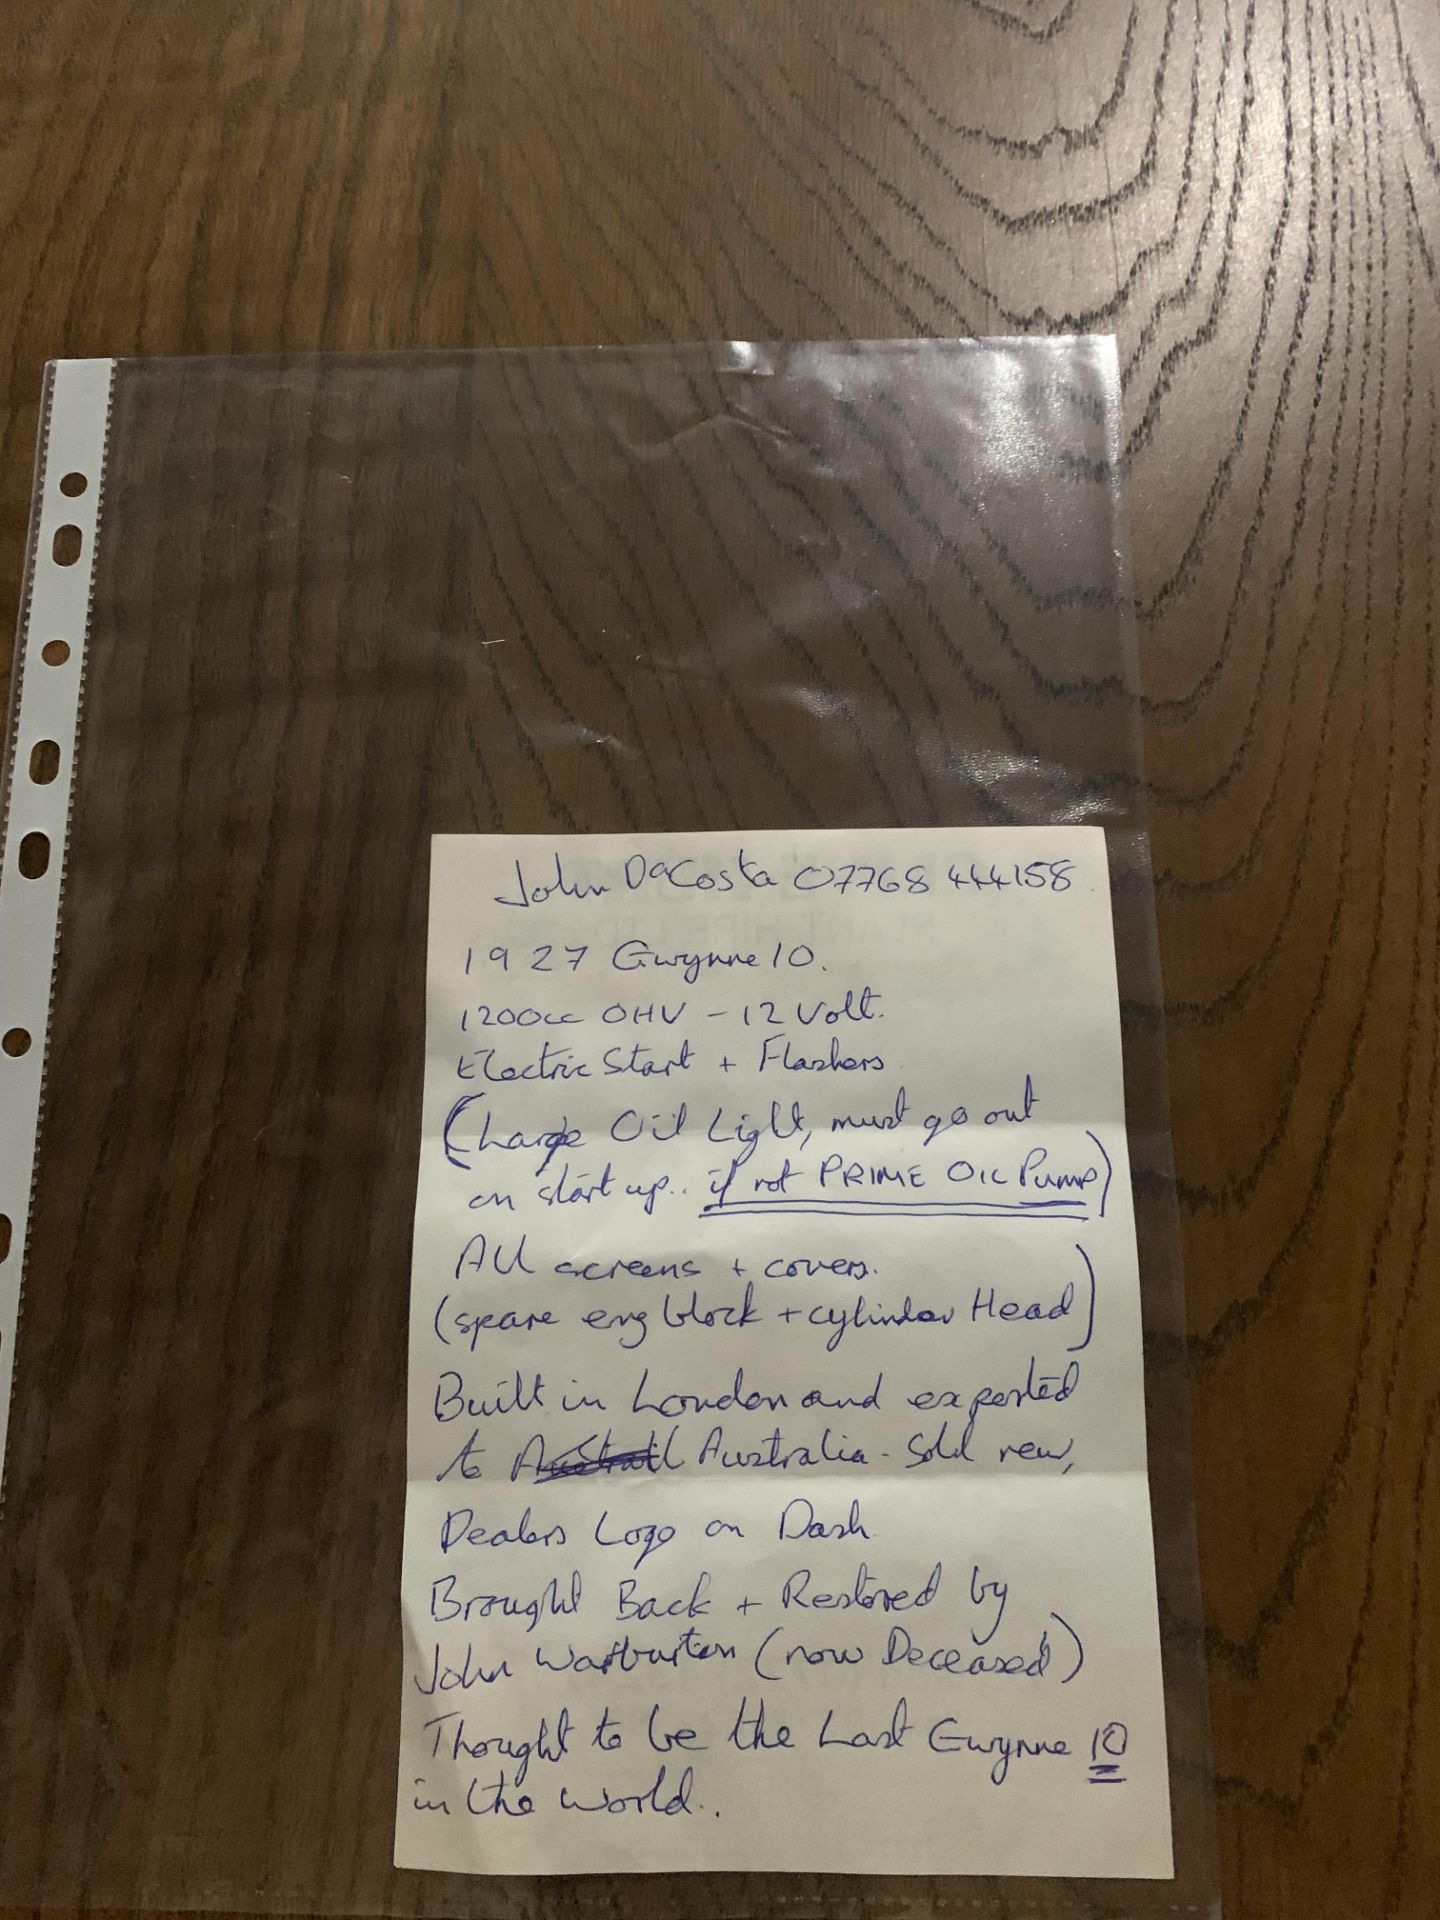 John DaCosta 07768 444158
1927 Gwynne 10.
1200cc OHV - 12 Volt.
Electric Start + Flashers
(Large Oil Light, must go out
on start up.. if not PRIME OIL PUMP)
All screens + covers.
(spare eng block + cylinder Head)
Built in London and exported
to Australia - Sold new,
Dealers Logo on Dash.
Brought Back + Restored by
John Warburton (now Deceased)
Thought to be the Last Gwynne 10
in the world..